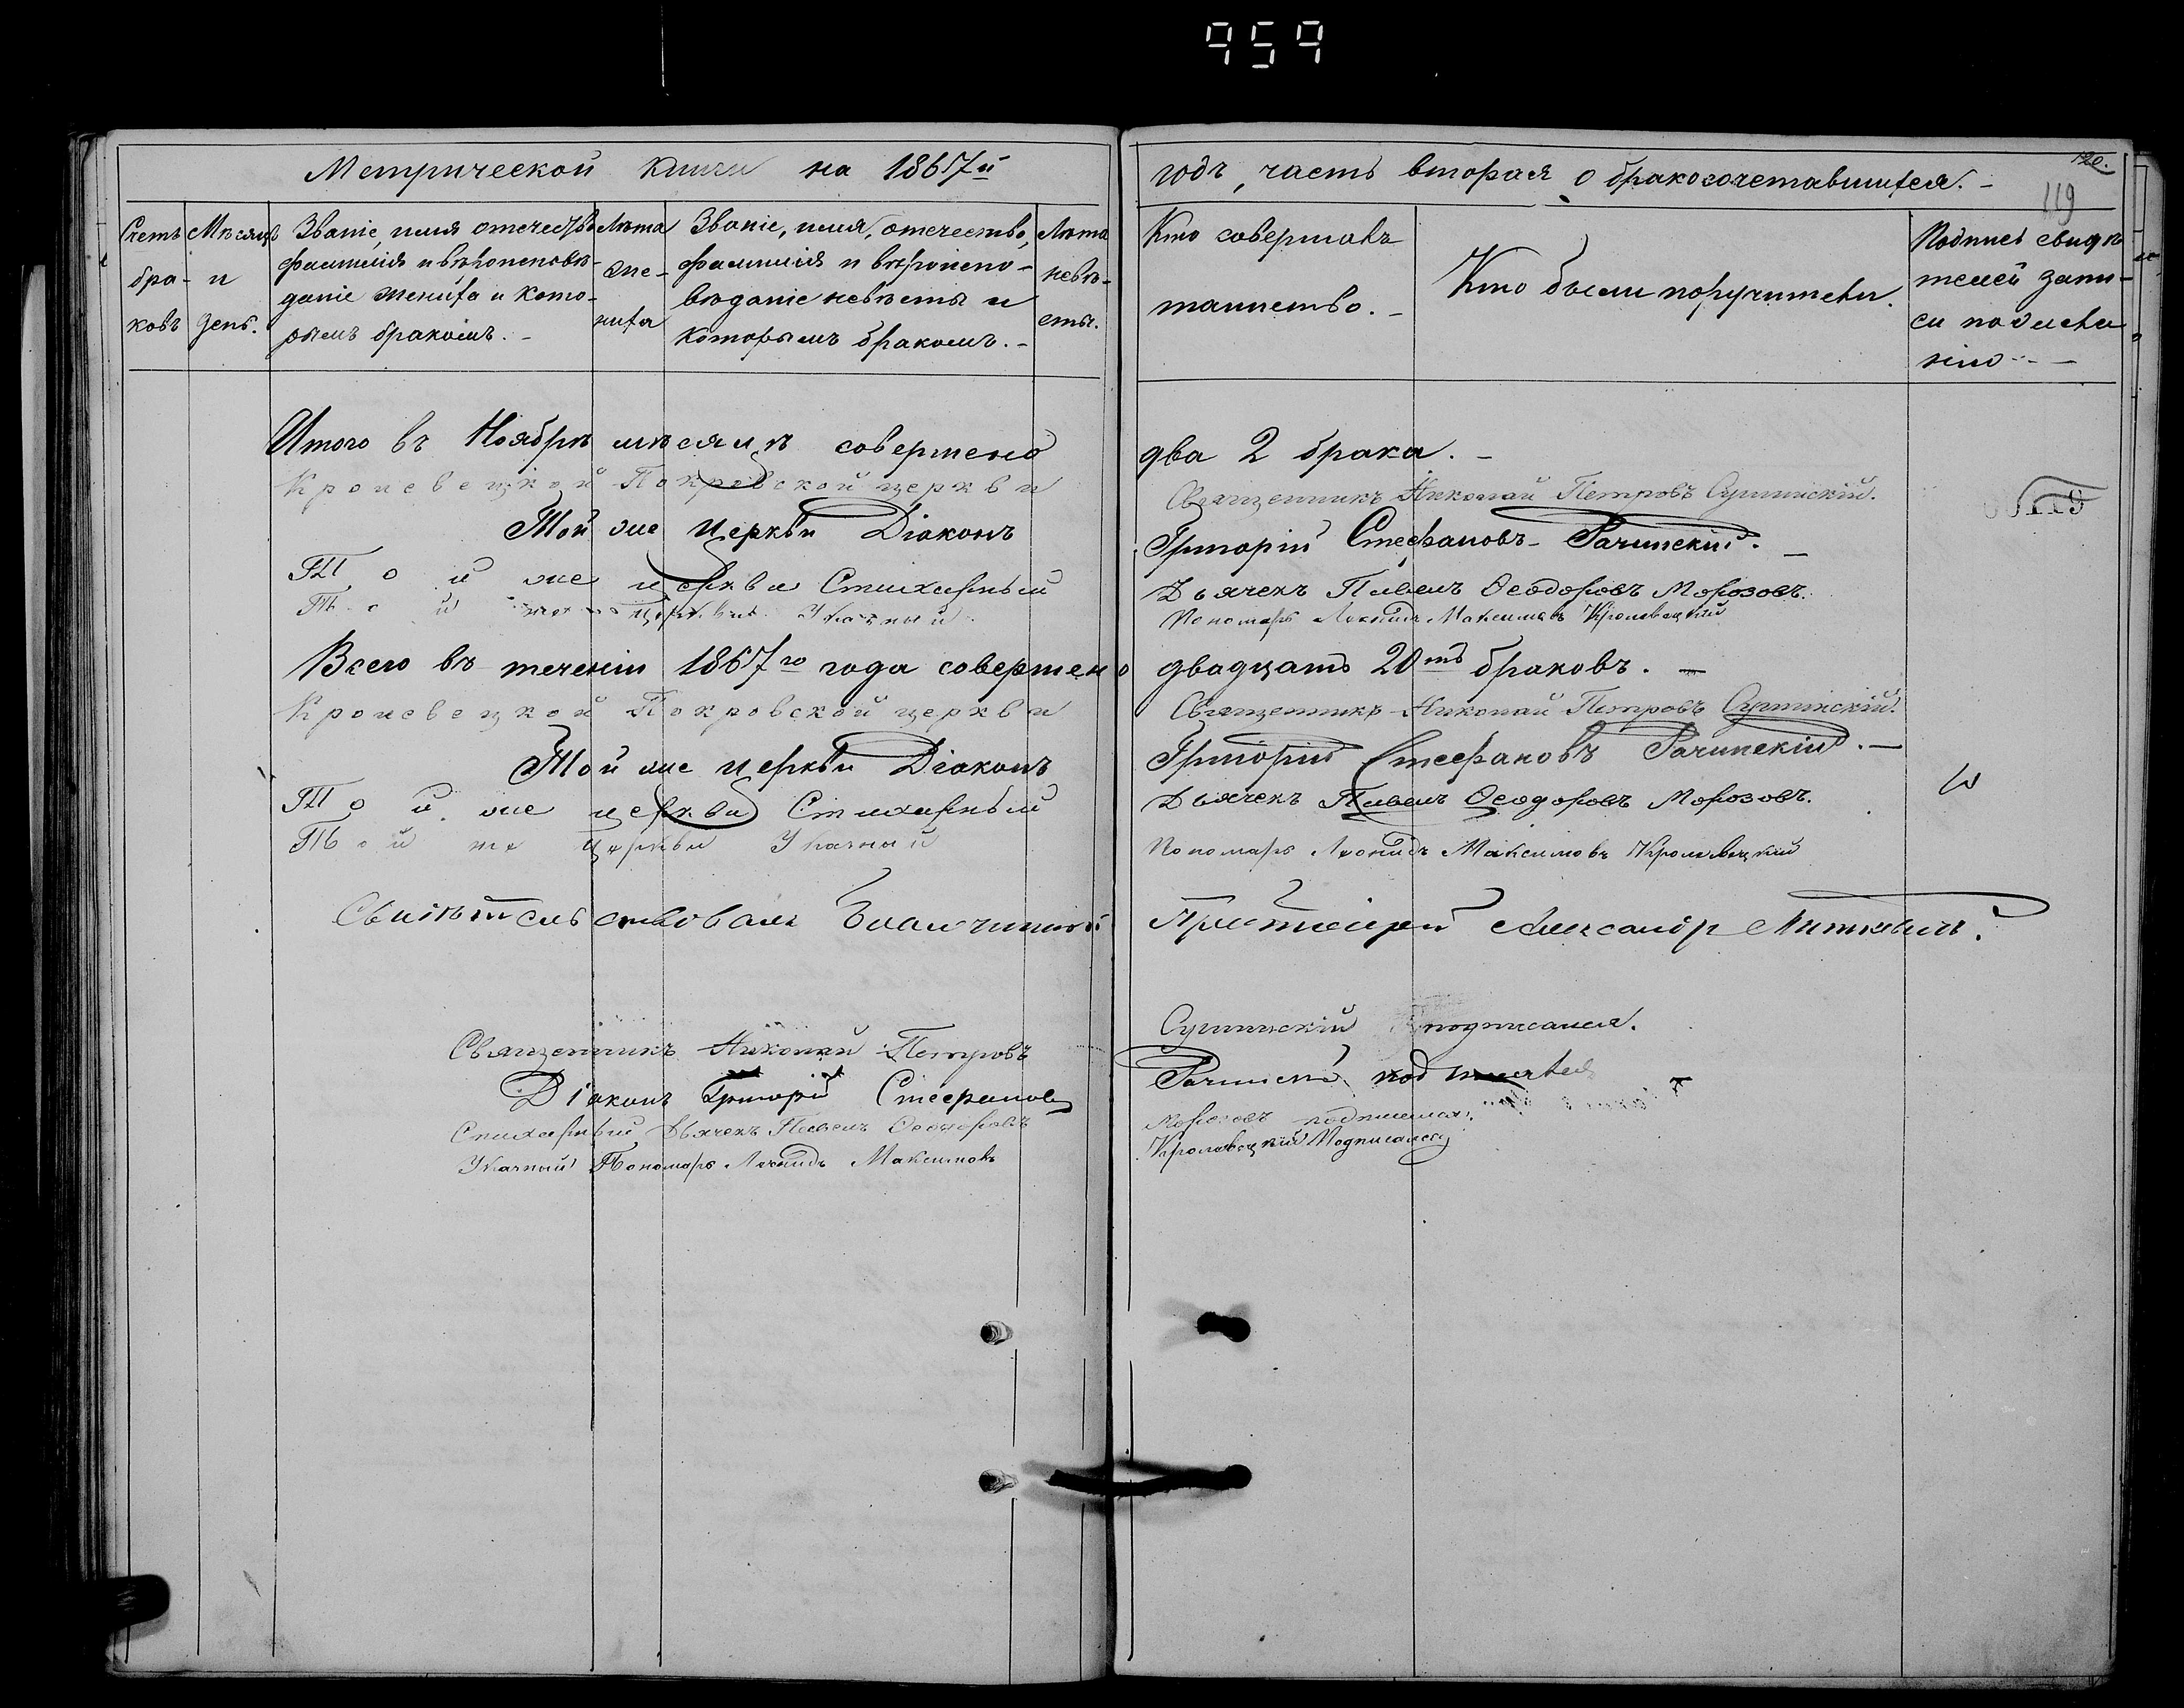 959
Метрической книги на 1867й годъ, часть вторая о бракосочетавшихся.
120.
119
Счетъ браковъ
Мѣсяцъ и день.
Званіе, имя отечество
фамилія и вѣроисповѣ-
даніе жениха и кото-
рымъ бракомъ.
Лѣта
же-
ниха
Званіе, имя, отечество,
фамилія и вѣроиспо-
вѣданіе невѣсты и
которымъ бракомъ.
Лѣта
невѣ-
сты.
Кто совершалъ
таинство.
Кто были поручители.
Подпись свидѣ
телей запи-
си по жела
нію
Итого въ Ноябрѣ мѣсяцѣ совершено два 2 брака.
Кролевецкой Покровской церкви Священникъ Николай Петровъ
Той же церкви Діаконъ Григорій Стефановъ Рачинскій.
Той же церкви Стихарный Дьячекъ Павелъ Ѳеодоровъ Морозовъ.
Той же церкви Указный Пономарь Леонидъ Максимовъ Кролевецкій
119
Всего въ теченіи 1867го года совершено двадцать 20ть браковъ.
Кролевецкой Покровской церкви Священникъ Николай Петровъ
Той же церкви Діаконъ Григорій Стефановъ Рачинскій.
Той же церкви Стихарный Дьячекъ Павелъ Ѳеодоровъ Морозовъ.
Той же церкви Указный Пономарь Леонидъ Максимовъ Кролевецкій
Свидѣтельствовалъ Благочинный Александр
Священникъ Николай Петровъ подписался.
Діаконъ Григорій Стефановъ Рачинскій подписался
Стихарный Дьячекъ Павелъ Ѳеодоровъ Морозовъ подписался.
Указный Пономарь Леонидъ Максимовъ Кролевецкій Подписался